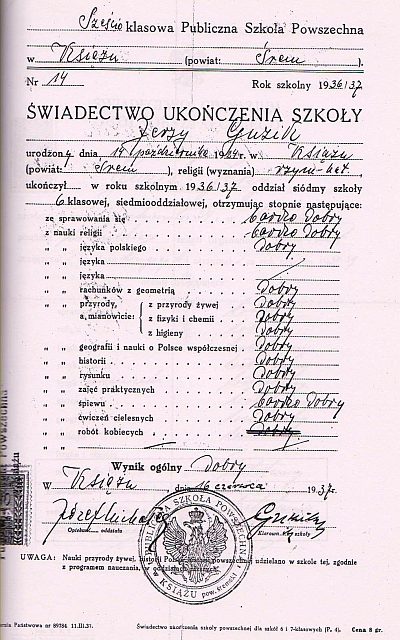 Sześcio klasowa Publiczna Szkoła Powszechna
w Książu (powiat: Śrem ).
Nr 14 Rok szkolny 1936/37
ŚWIADECTWO UKOŃCZENIA SZKOŁY
Jerzy Guzik
urodzony dnia 14 października 1924 r. w Książu
(powiat: Śrem ), religii (wyznania) rzym-kat.
ukończył w roku szkolnym 1936/37. oddział siódmy szkoły
6 klasowej, siedmiooddziałowej, otrzymując stopnie następujące:
ze sprawowania się bardzo dobry
z nauki religii bardzo dobry
„ „ języka polskiego dobry
„ „ języka
„ „ języka
„ „ rachunków z geometrią dobry
„ „ przyrody, z przyrody żywej dobry
a mianowicie: z fizyki i chemii dobry
z higieny dobry
„ „ geografii i nauki o Polsce współczesnej dobry
„ „ historii dobry
„ „ rysunku dobry
„ „ zajęć praktycznych dobry
„ „ śpiewu bardzo dobry
„ „ ćwiczeń cielesnych dobry
„ „ robót kobiecych dobry
„ „
Wynik ogólny dobry
W Książu dnia 16 czerwca 1937 r.
Opiekun oddziału Kierown. szkoły
PUBLICZNA SZKOŁA POWSZECHNA
w KSIĄŻU pow. śremski
UWAGA: Nauki przyrody żywej, historii Polsce współczesnej udzielano w szkole tej, zgodnie
z programem nauczania,
Państwowa nr 89784 11.III.37. Świadectwo ukończenia szkoły powszechnej dla szkół 6 i 7-klasowych (F. 4). Cena 8 gr.